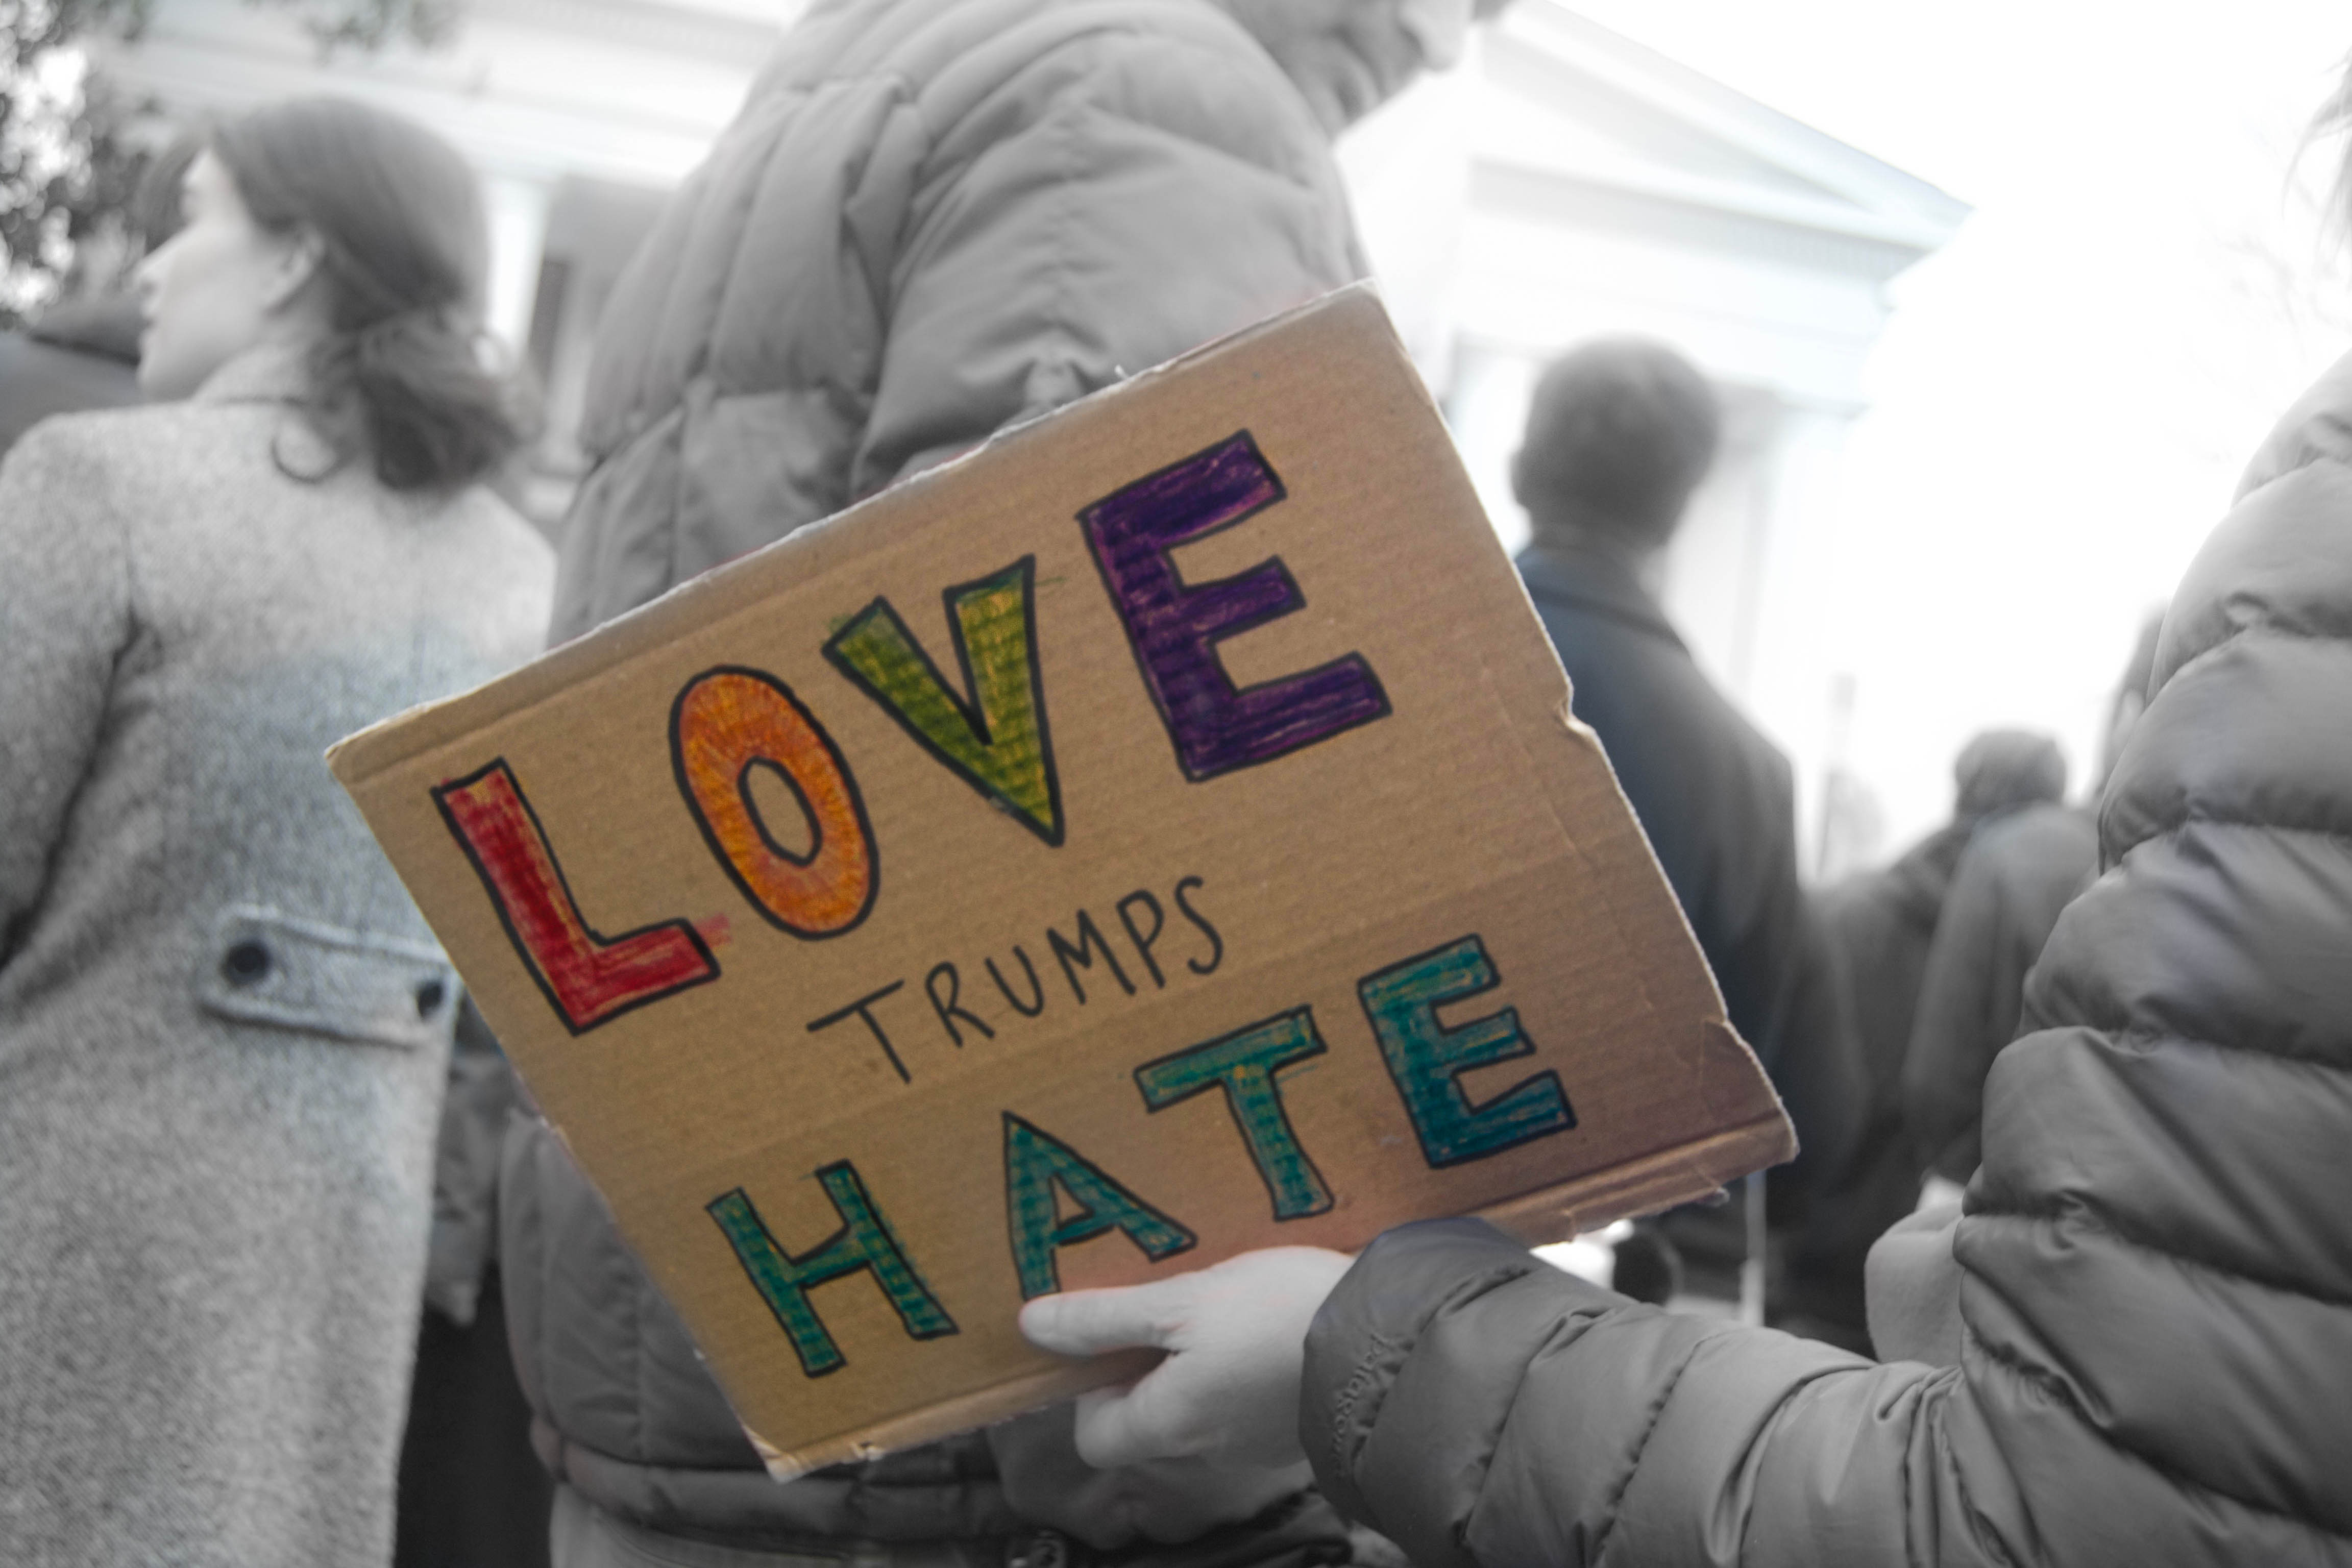 LOVE
TRUMPS
HATE
patagonia